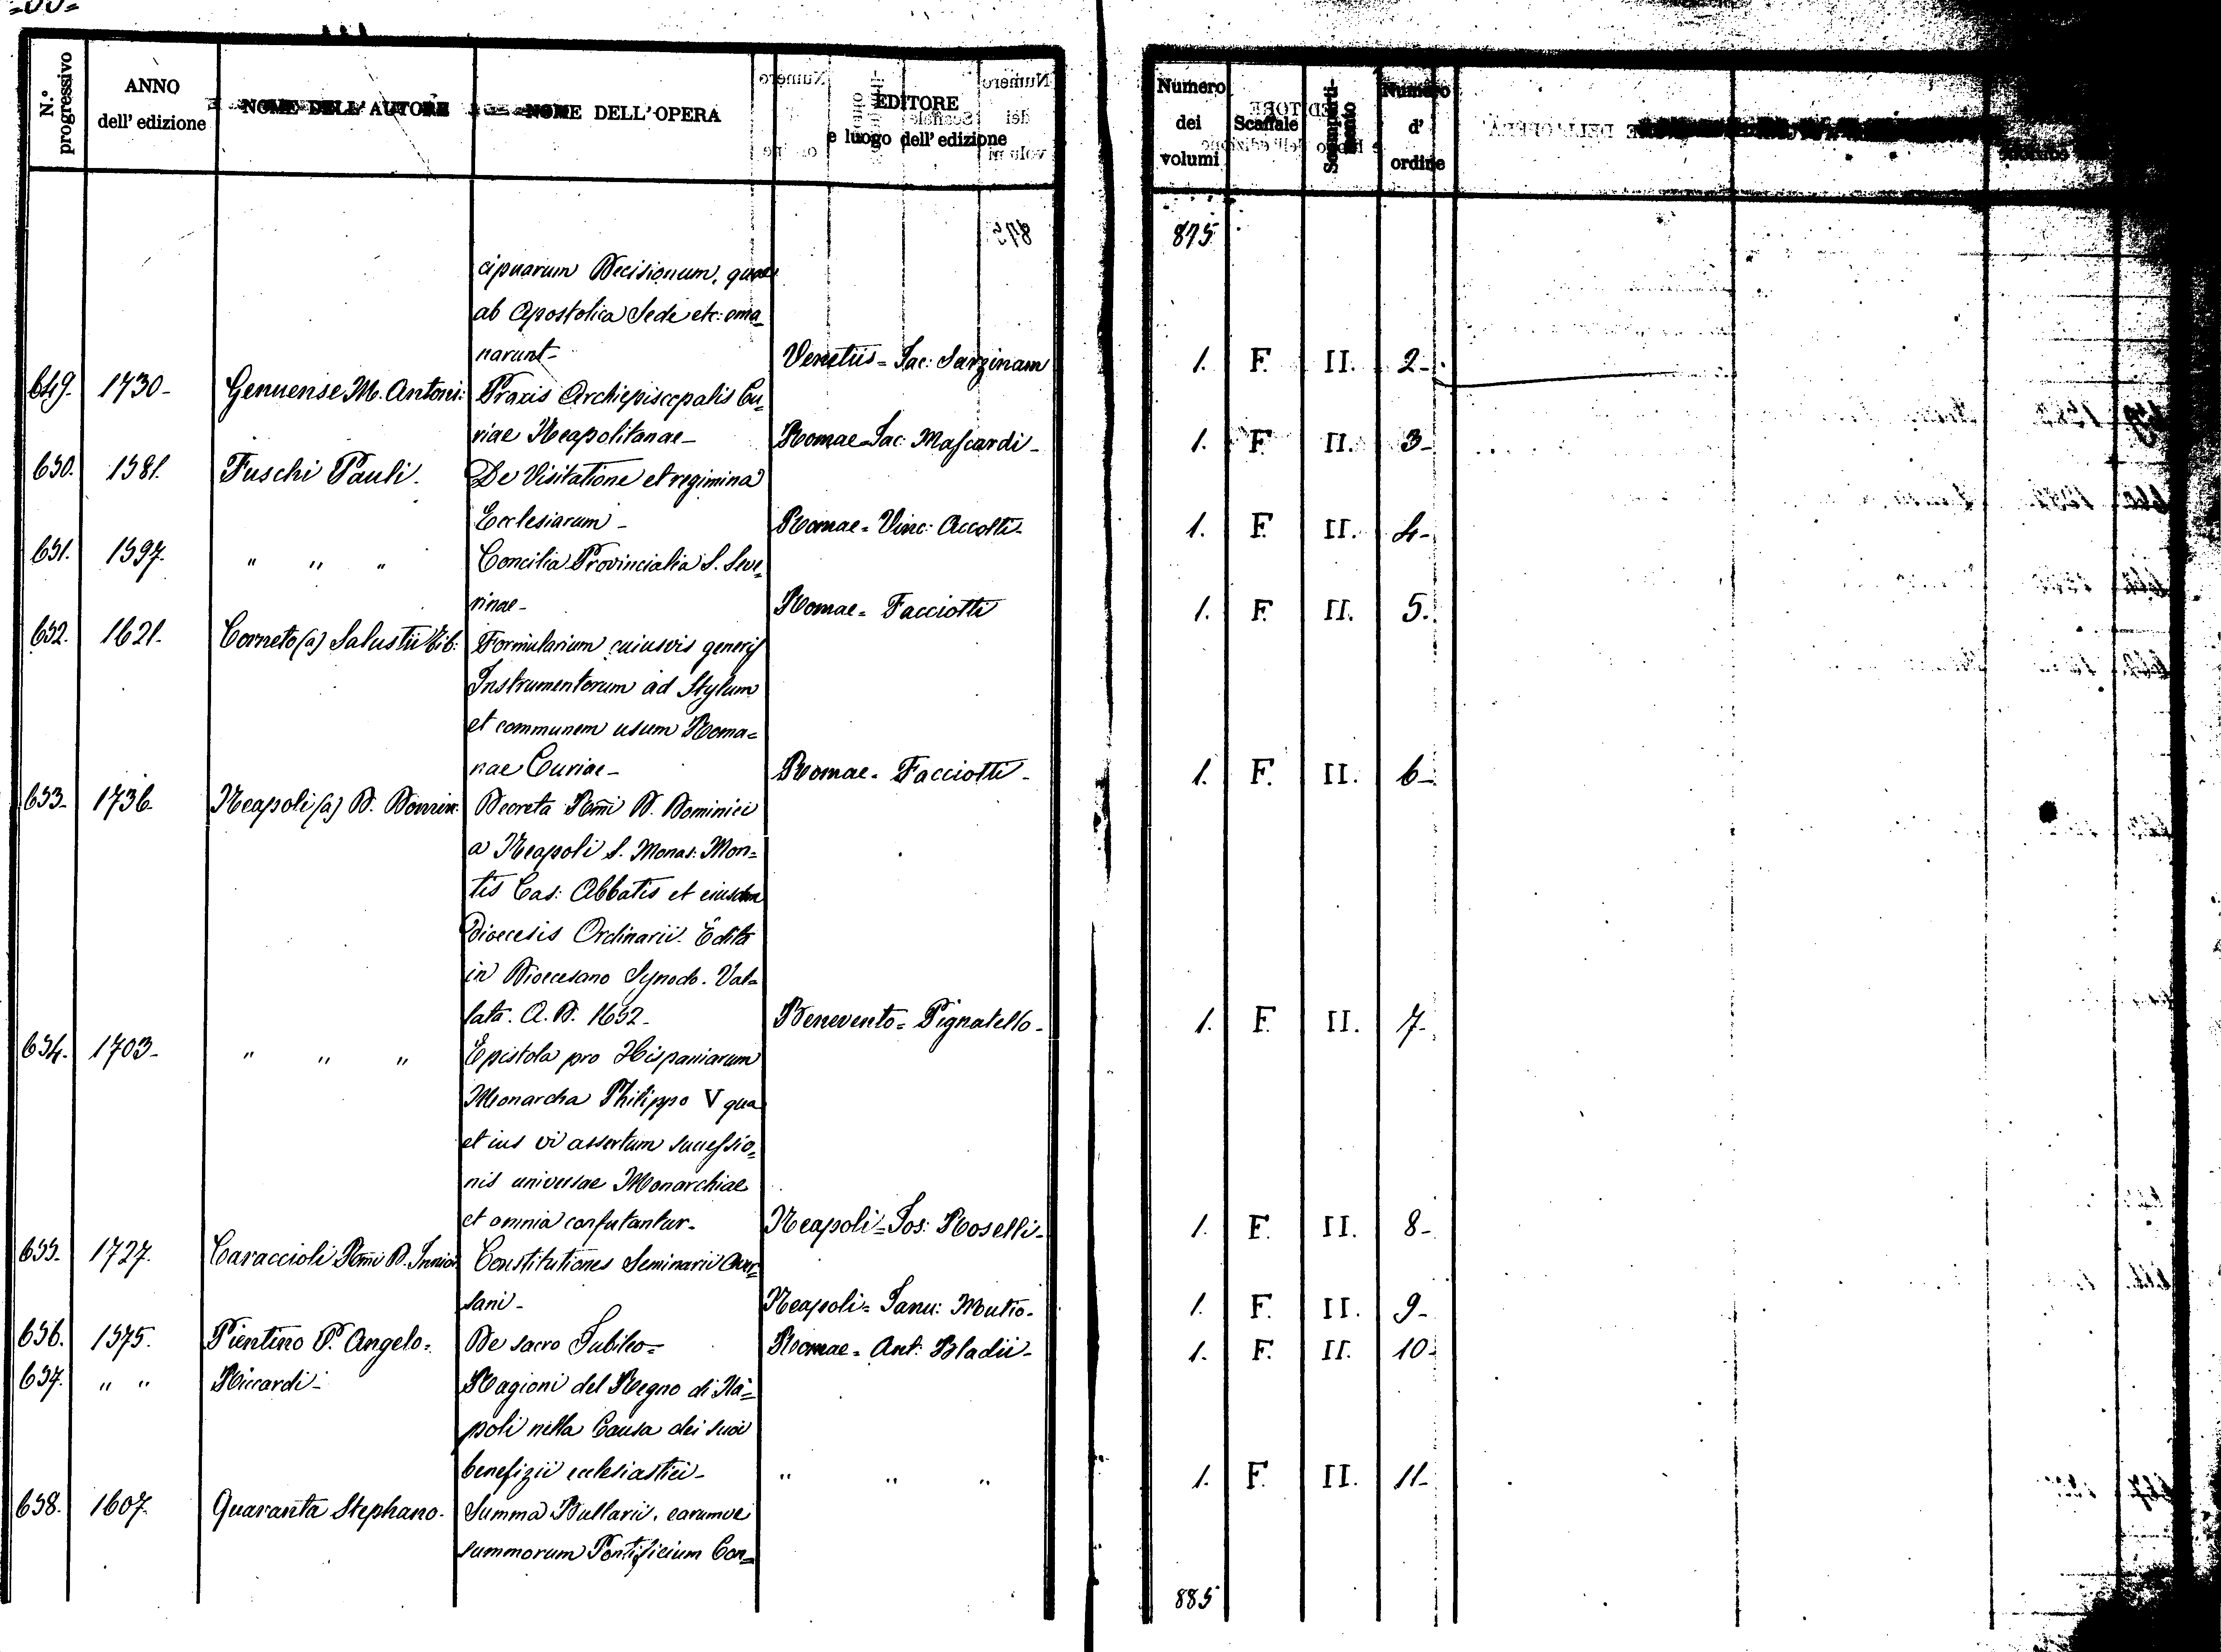 N.° progressivo | ANNO dell' edizione | NOME DELL' AUTORE | NOME DELL' OPERA | EDITORE e luogo dell' edizione | Numero dei volumi | Scaffale | Scompartimento | Numero d' ordine
875
cipuarum Decisionum, quae
ab Apostolica Sede etc: ema_
narunt_ | Venetiis = Jac: Sarzinam | 1. | F. | II. | 2_
649. | 1730_ | Genuense M. Antoni: | Praxis Archiepiscopalis Cu_
riae Neapolitanae_ | Romae=Jac: Mascardi_ | 1. | F. | II. | 3_
650. | 1581. | Fuschi Pauli. | De Visitatione et regimina
Ecclesiarum_ | Romae= Vinc: Accolti_ | 1. | F. | II. | 4_
651. | 1597. | " " " | Concilia Provincialia S. Seve_
rinae_ | Romae= Facciotti | 1. | F. | II. | 5.
652. | 1621. | Corneto (a) Salustii Tib: | Formularium cuiusvis generis
Instrumentorum ad Stylum
et communem usum Roma=
nae Curiae_ | Romae= Facciotti_ | 1. | F. | II. | 6_
653_ | 1736. | Neapoli (a) D. Domin: | Decreta Rm̄i D. Dominici
a Neapoli S. Monas: Mon=
tis Cas: Abbatis et eiusdem
Dioecesis Ordinarii. Edita
in Dioecesano Synodo. Val=
lata. A. D. 1652_ | Benevento= Pignatello_ | 1. | F. | II. | 7_
654. | 1703_ | " " " | Epistola pro Hispaniarum
Monarcha Philippo V qua
et ius vi assertum successio=
nis universae Monarchiae
et omnia confutantur_ | Neapoli=Jos: Roselli_ | 1. | F. | II. | 8_
655_ | 1727. | Caraccioli Rm̄i D. Innico | Constitutiones Seminarii Aver=
sani_ | Neapoli= Janu: Mutio_ | 1. | F. | II. | 9_
656. | 1575. | Pientino P. Angelo= | De sacro Jubileo= | Romae= Ant: Bladii_ | 1. | F. | II. | 10_
657. | " " | Riccardi_ | Ragioni del Regno di Na=
poli nella Causa dei suoi
benefizii ecclesiastici_ | " " " | 1. | F. | II. | 11_
658. | 1607. | Quaranta Stephano. | Summa Bullarii, earumve
summorum Pontificium Con=
885